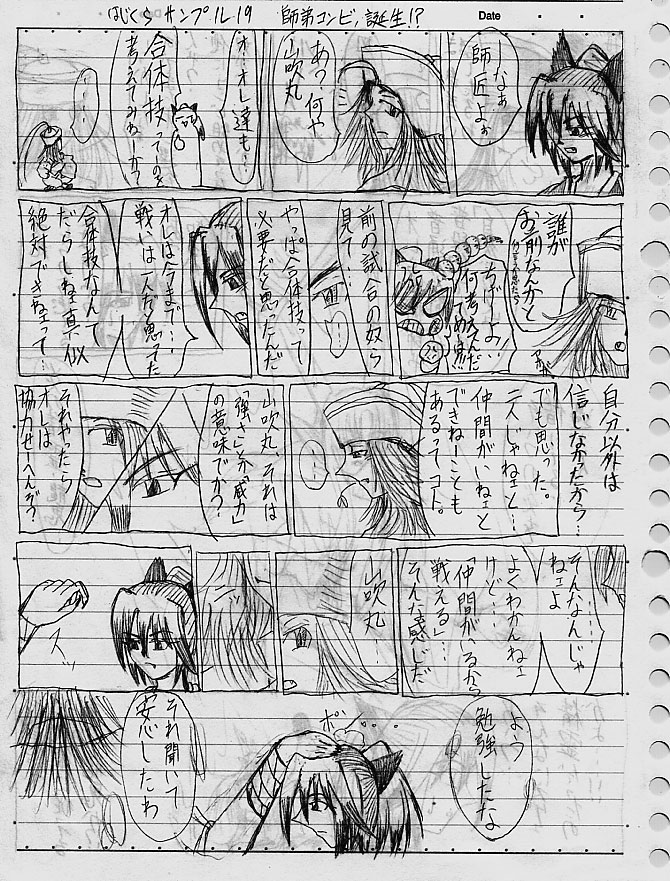 はじくらサンプル19 師弟コンビ、誕生!?
Date
なぁ
師匠よぉ
あっ何や
山吹丸
オ…オレ達も…
合体技ってーのを
考えてみねーか?
……
誰が
お前なんかと
ちげーよ!
何考えてんだ
前の試合の奴ら
見て……
やっぱ合体技って
必要だと思ったんだ
…
オレは今まで…
戦いは一人だと思ってた
合体技なんて
だらしねェ真似
絶対できねェって…
自分以外は
信じなかったから…
でも思った。
一人じゃねェと…
仲間がいねェと
できねーことも
あるってコト。
…
山吹丸、それは
「強い」とか「威力」
の意味でか?
それやったら
オレは
協力せえへんぞ?
……
そんなんじゃ
ねェよ
よくわかんねェ
けど…
「仲間がいるから
戦える」…
そんな感じだ
山吹丸
スッ
よう
勉強したな
ポン
それ聞いて
安心したわ